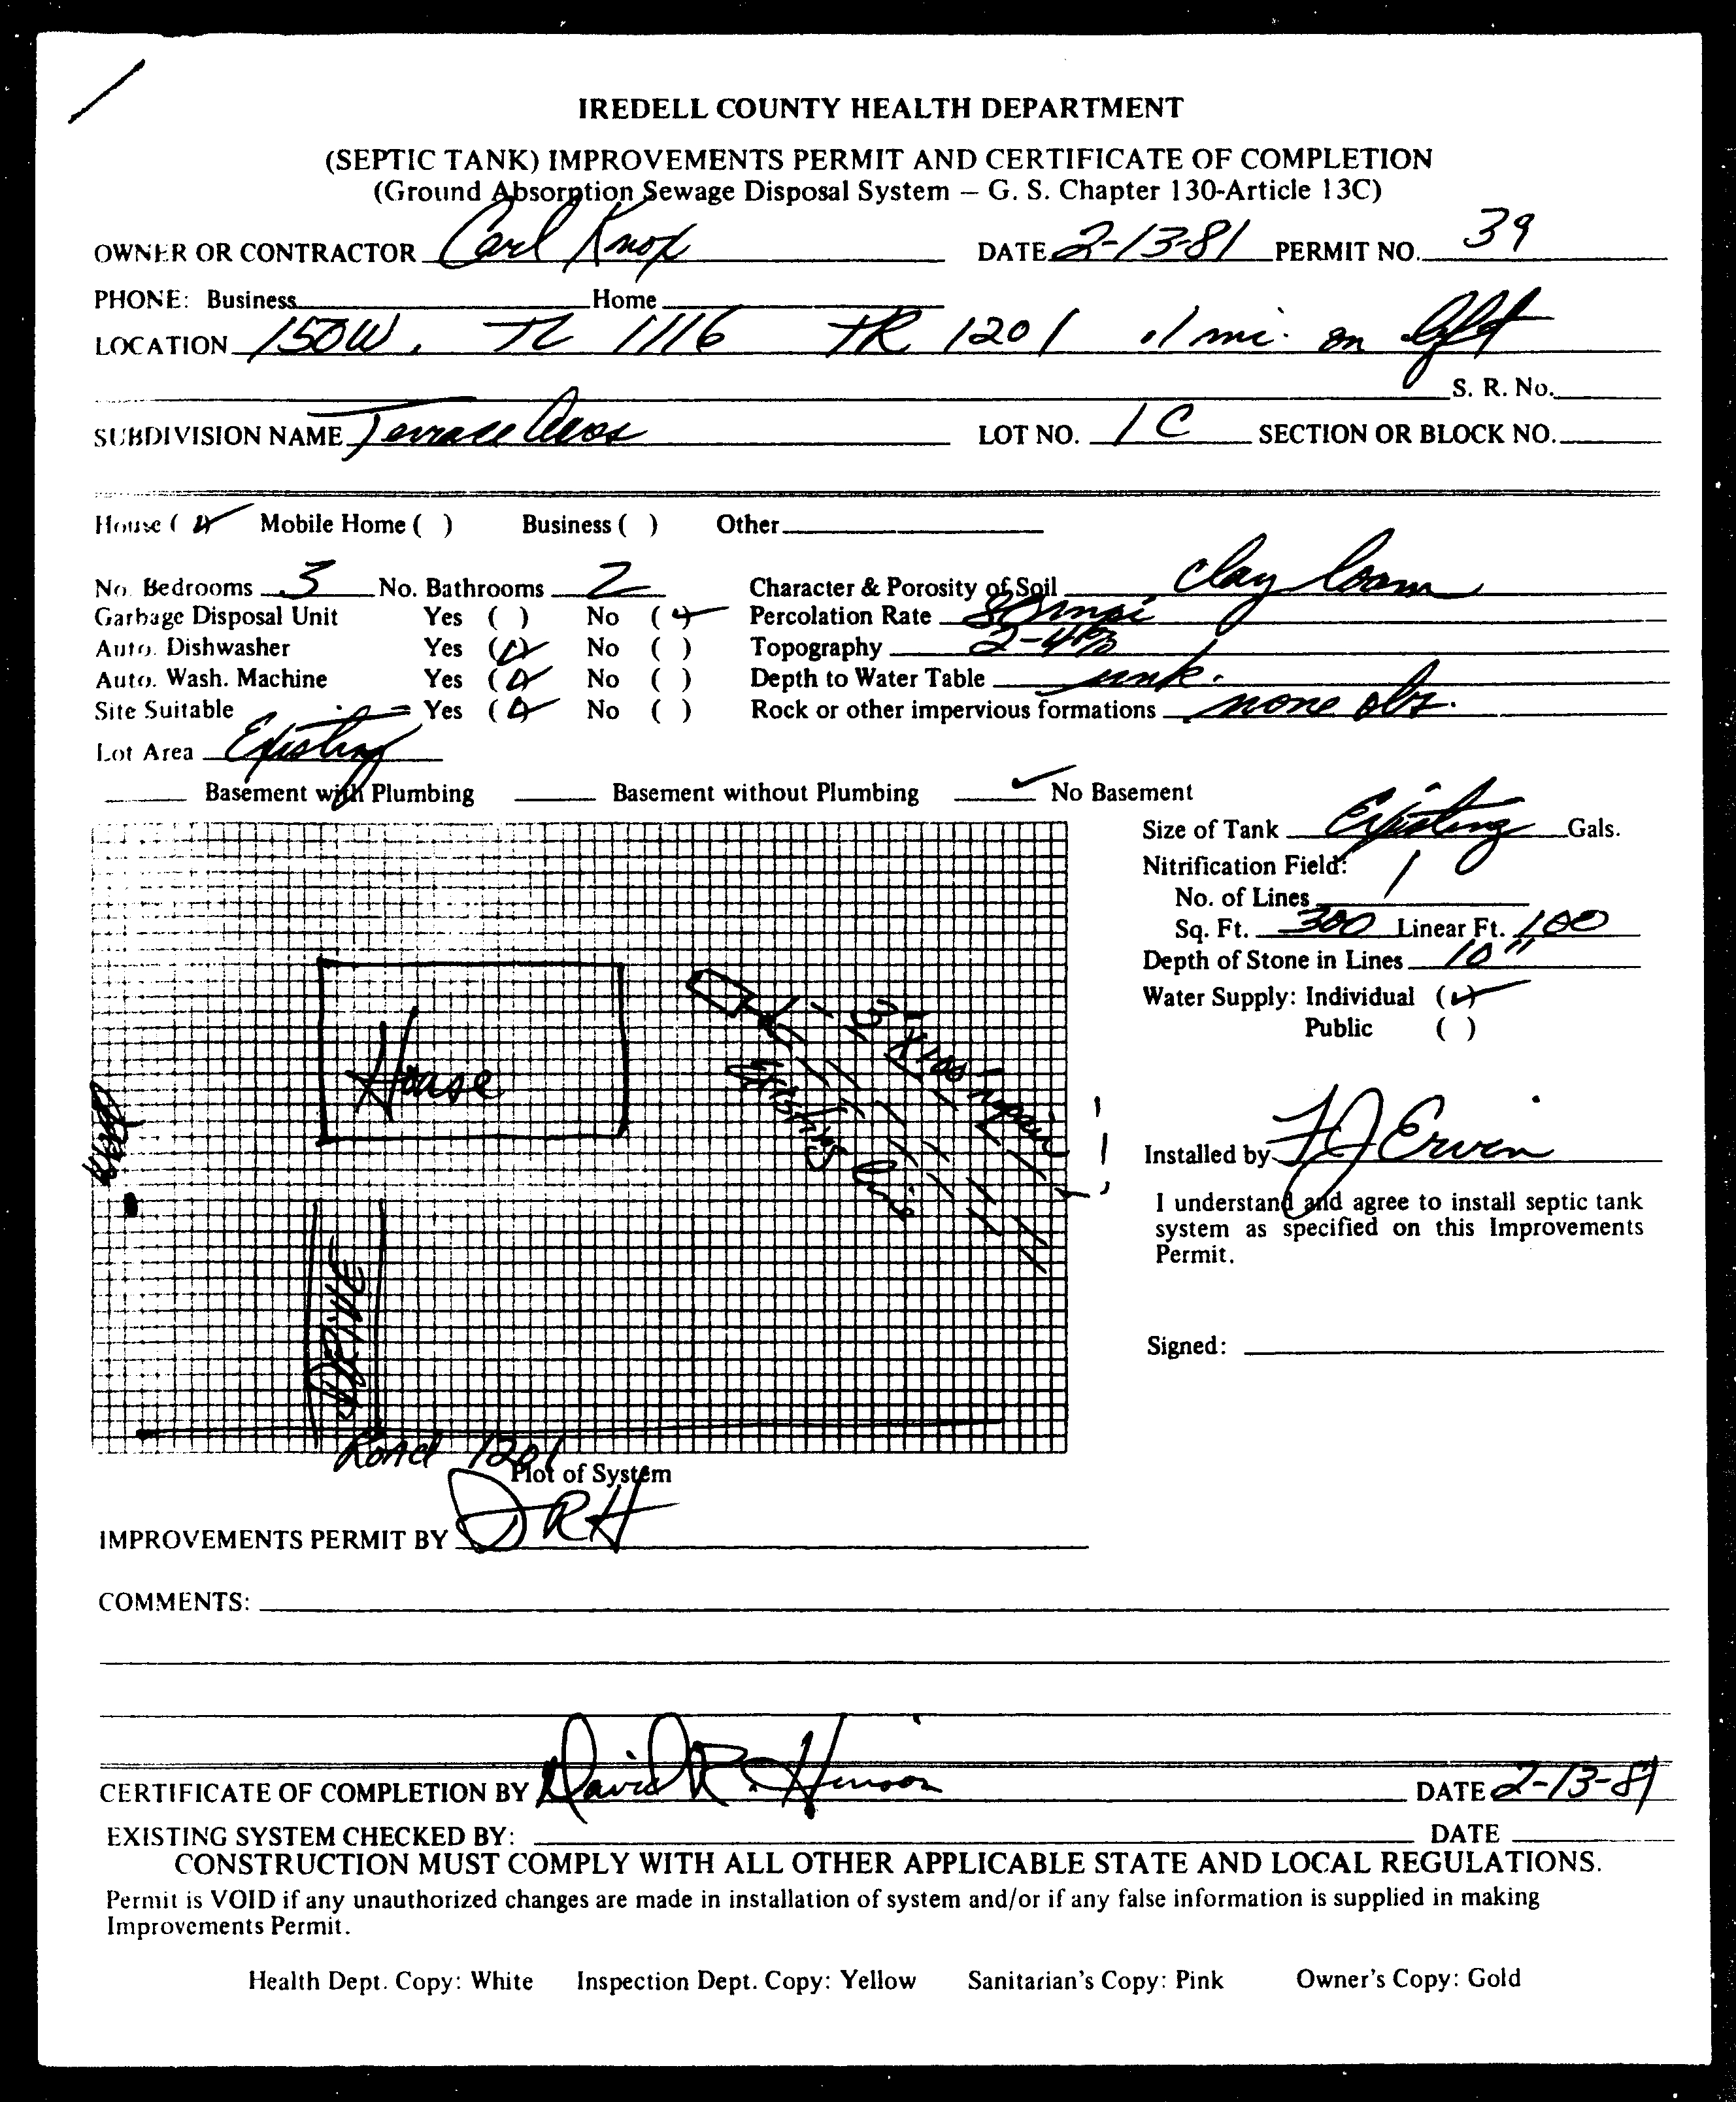 IREDELL COUNTY HEALTH DEPARTMENT
(SEPTIC TANK) IMPROVEMENTS PERMIT AND CERTIFICATE OF COMPLETION
(Ground Absorption Sewage Disposal System — G. S. Chapter 130-Article 13C)
OWNER OR CONTRACTOR Carl Knox DATE 2-13-81 PERMIT NO. 39
PHONE: Business Home
LOCATION 150W. TL 1116 TR 1201 .1 mi. on left
S. R. No.
SUBDIVISION NAME Terrace LOT NO. 1C SECTION OR BLOCK NO.
House ( ) Mobile Home ( ) Business ( ) Other
No. Bedrooms 3 No. Bathrooms 2 Character & Porosity of Soil clay loam
Garbage Disposal Unit Yes ( ) No (✓) Percolation Rate 80 mpi
Auto. Dishwasher Yes (✓) No ( ) Topography 2-4%
Auto. Wash. Machine Yes (✓) No ( ) Depth to Water Table unk.
Site Suitable Yes (✓) No ( ) Rock or other impervious formations none obs.
Lot Area Existing
Basement with Plumbing Basement without Plumbing ✓ No Basement
Size of Tank Existing Gals.
Nitrification Field:
No. of Lines 1
Sq. Ft. 300 Linear Ft. 100
Depth of Stone in Lines 10"
Water Supply: Individual (✓)
Public ( )
House
Existing line
3' x 100' repair
Well
DRIVE
Road 1201
Installed by FJ Erwin
I understand and agree to install septic tank
system as specified on this Improvements
Permit.
Signed:
Plot of System
IMPROVEMENTS PERMIT BY DRH
COMMENTS:
CERTIFICATE OF COMPLETION BY David R. Hinson DATE 2-13-81
EXISTING SYSTEM CHECKED BY: DATE
CONSTRUCTION MUST COMPLY WITH ALL OTHER APPLICABLE STATE AND LOCAL REGULATIONS.
Permit is VOID if any unauthorized changes are made in installation of system and/or if any false information is supplied in making
Improvements Permit.
Health Dept. Copy: White Inspection Dept. Copy: Yellow Sanitarian's Copy: Pink Owner's Copy: Gold